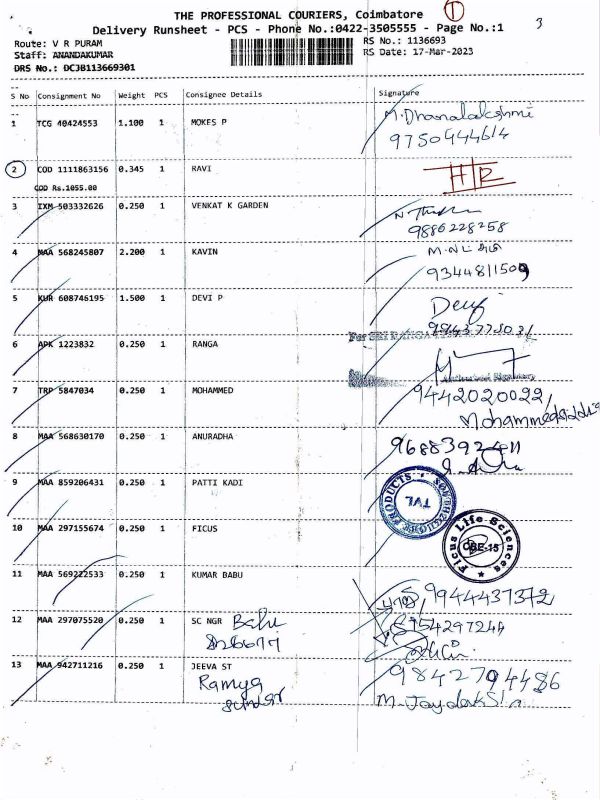 THE PROFESSIONAL COURIERS, Coimbatore
1
3
Delivery Runsheet - PCS - Phone No.:0422-3505555 - Page No.:1
Route: V R PURAM RS No.: 1136693
Staff: ANANDAKUMAR RS Date: 17-Mar-2023
DRS No.: DCJB113669301
S No Consignment No Weight PCS Consignee Details Signature
1 TCG 40424553 1.100 1 MOKES P M.Dhanalakshmi
9750944614
2 COD 1111863156 0.345 1 RAVI
COD Rs.1055.00
3 IXM 503332626 0.250 1 VENKAT K GARDEN
9886228258
4 MAA 568245807 2.200 1 KAVIN
9344811509
5 KUR 608746195 1.500 1 DEVI P Devi
For SRI RANGA
6 APK 1223832 0.250 1 RANGA
Authorised Signatory
7 TRP 5847034 0.250 1 MOHAMMED 9442020022,
8 MAA 568630170 0.250 1 ANURADHA
9 MAA 859206431 0.250 1 PATTI KADI
PRODUCTS
TVL
10 MAA 297155674 0.250 1 FICUS
Ficus Life Sciences
CBE-15
11 MAA 569222533 0.250 1 KUMAR BABU 9944437372
12 MAA 297075520 0.250 1 SC NGR
13 MAA 942711216 0.250 1 JEEVA ST 9842794486
Ramya